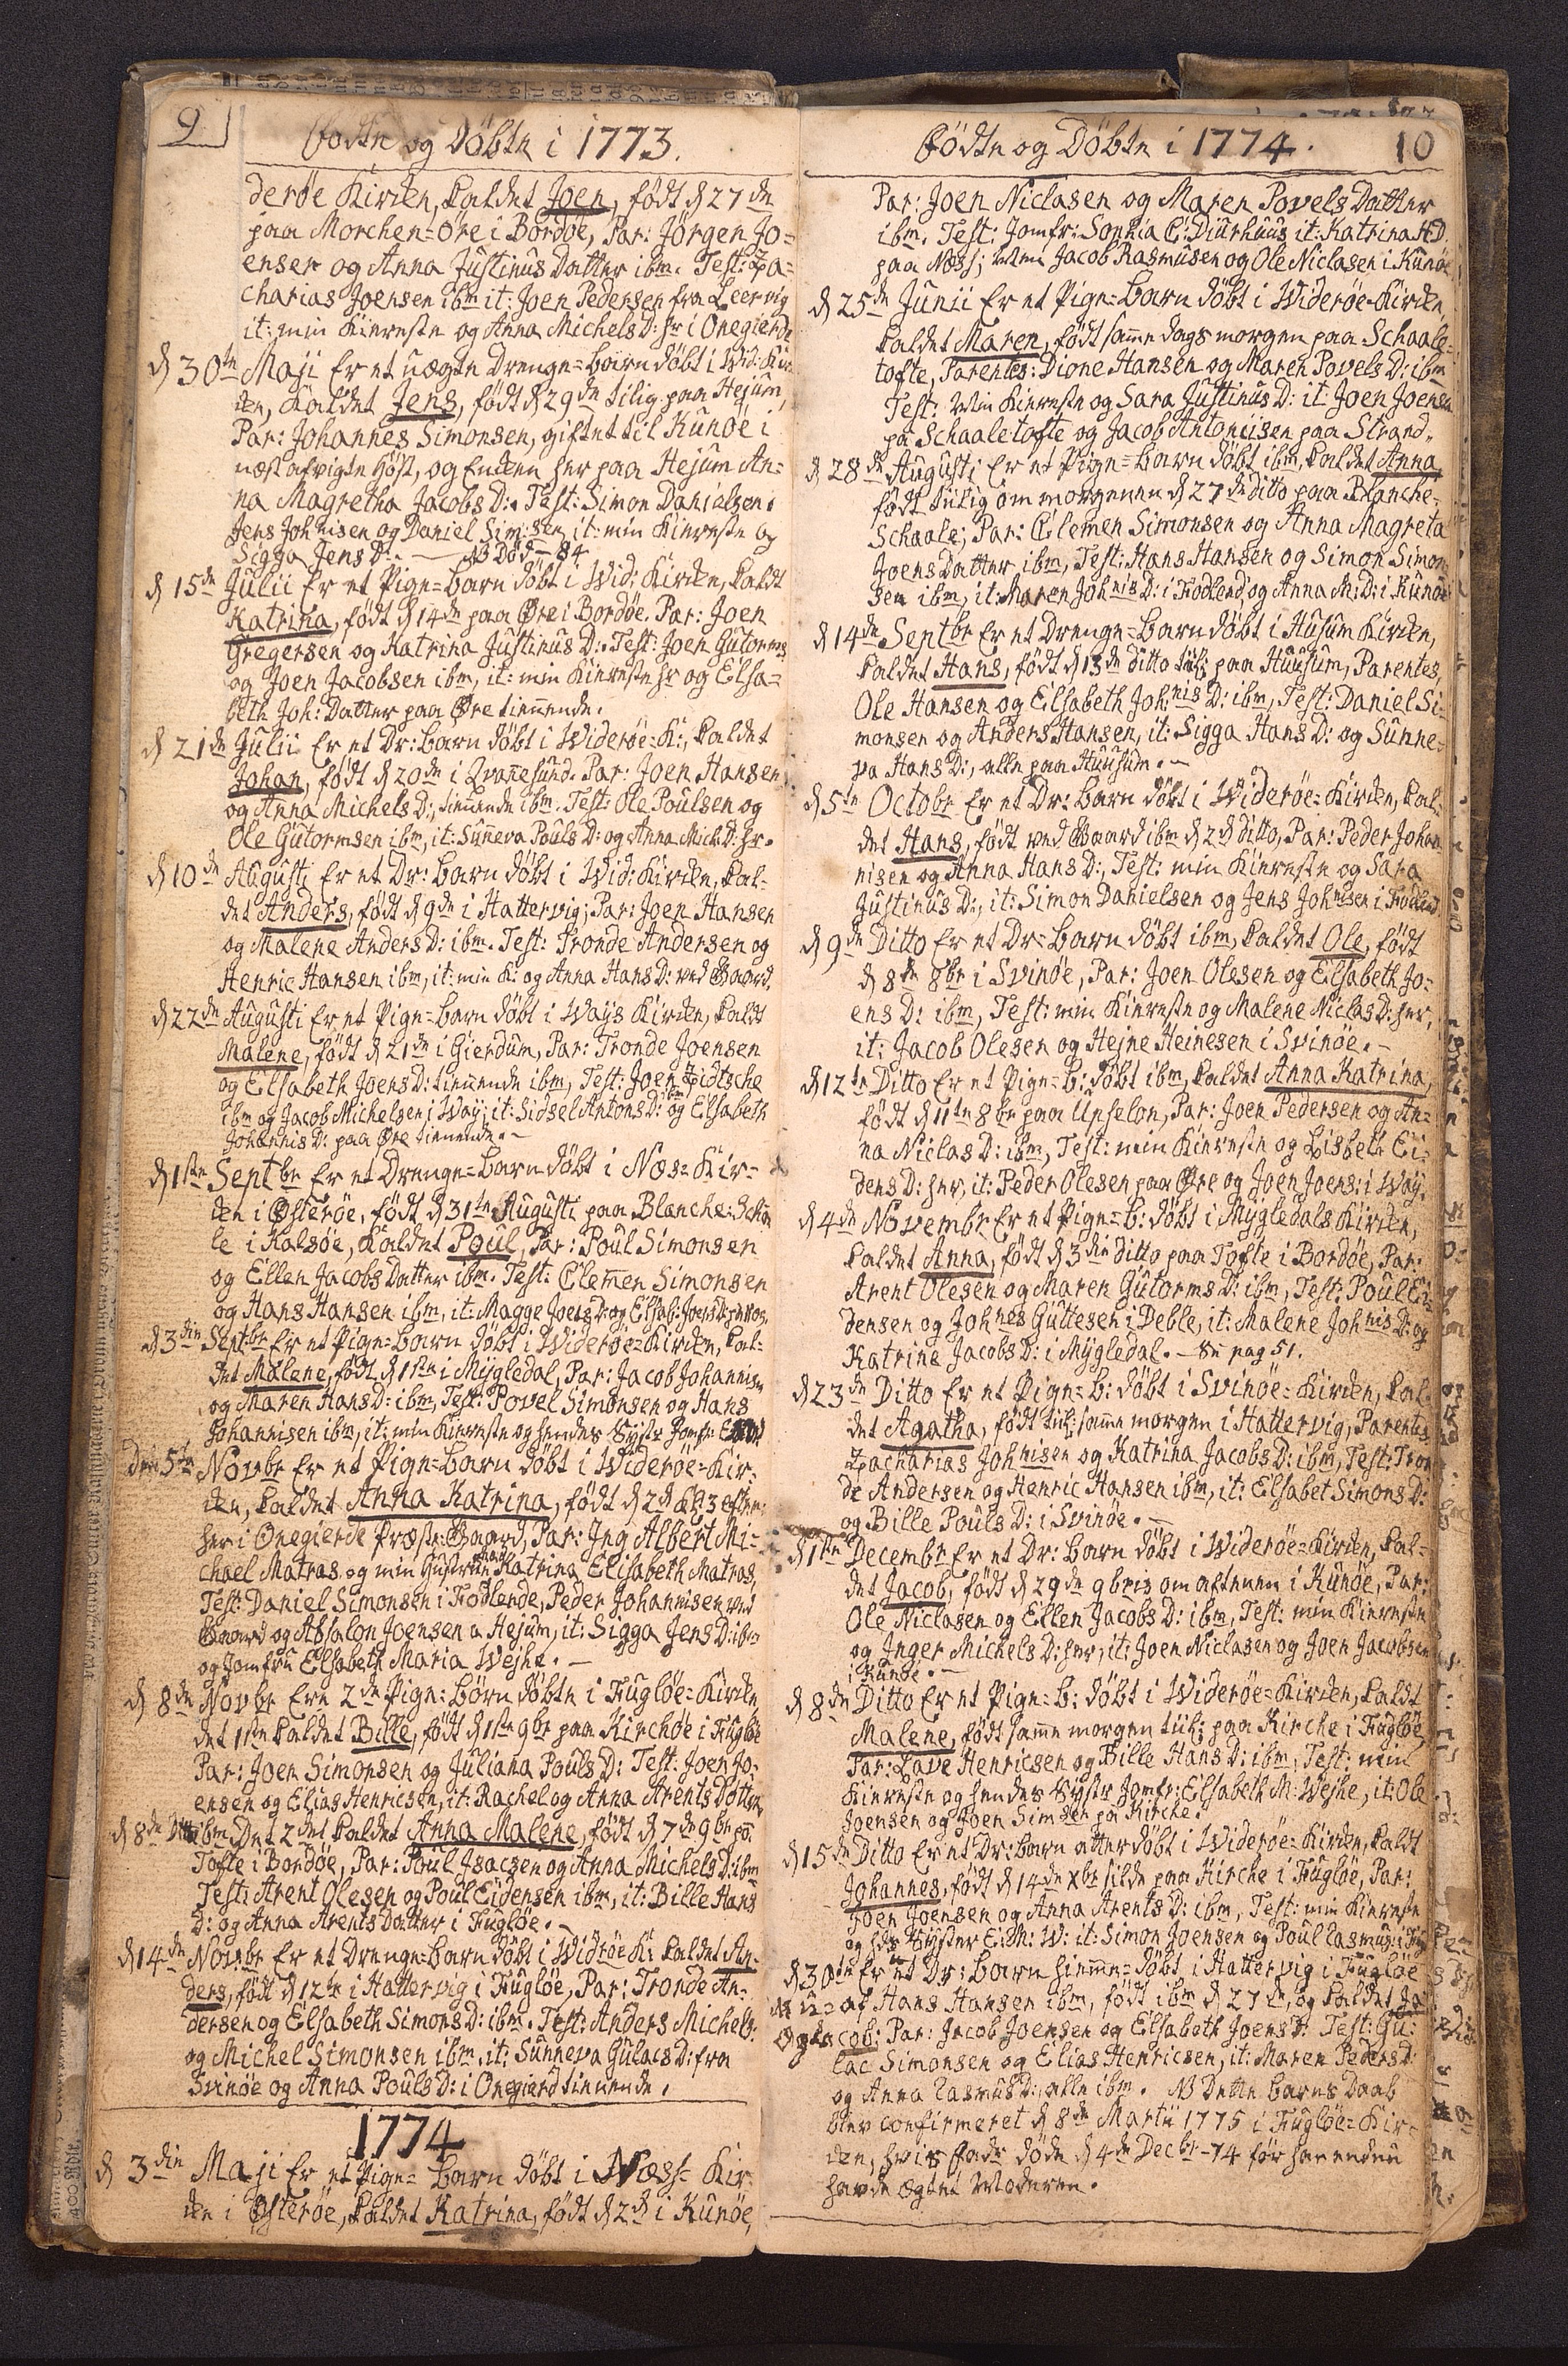 9
Fødte og Döbte i 1773.
deröe Kircke, kaldet Joen, född d 27de
paa Morchen=Øre i Bordöe, Par: Jörgen Jo=
ensen og Anna Justinus Datter ibm. Test: Za=
charias Joensen ibm it: Joen Pedersen fra Leervig
it: min Kiereste og Anna Michels D: hr i Onegierde
d 30te Maji Er et uægte Drenge=barn döbt i Wid: Kir
ken, kaldet Jens, född d 29de tilig paa Hejum,
Par: Johannes Simonsen, giftet til Kunöe i
næst afvigte Höst, og Encken her paa Hejum An=
na Magretha Jacobs D:. Test: Simon Danielsen.
Jens Johnisen og Daniel Sim:sen, it: min Kiereste og
Sigga Jens D:. — NB Död – 84
d 15de Julii Er et Pige=barn döbt i Wid: Kircken, kaldt
Katrina, född d 14de paa Øre i Bordöe. Par: Joen
Gregersen og Katrina Justinus D:. Test: Joen Gutorms
og Joen Jacobsen ibm, it: min Kiereste hr og Elsa=
beth Joh: Datter paa Øre tienende.
d 21de Julii Er et Dr: barn döbt i Wideröe=K:, kaldet
Johan, född d 20de i Qvannesund. Par: Joen Hansen
og Anna Michels D:, tienende ibm. Test: Ole Poulsen og
Ole Gutormsen ibm, it: Suneva Pouls D: og Anna Mich: D: hr.
d 10de Augusti Er et Dr: barn döbt i Wid: Kircken, kal=
det Anders, född d 9de i Hattervig; Par: Joen Hansen
og Malene Anders D: ibm. Test: Tronde Andersen og
Henric Hansen ibm, it: min K: og Anna Hans D: ved Gaard.
d 22de Augusti Er et Pige=barn döbt i Ways Kircken, kaldt
Malene, född d 21de i Gierdum, Par: Tronde Joensen
og Elsabeth Joens D: tienende ibm, Test: Joen Zidtsche
ibm og Jacob Michelsen i Way; it: Sidsel Antons D: ibm og Elsabeth
Johannis D: paa Øre tienende. –
d 1ste Septbr Er et Drenge=barn döbt i Næs=Kir=
ken i Østeröe, född d 31te Augusti paa Blanche=Scha
le i Kalsöe, kaldet Poul, Par: Poul Simonsen
og Ellen Jacobs Datter ibm. Test: Clemen Simonsen
og Hans Hansen ibm, it: Magge Joens D: og Elsab: Joens D:
d 3die Septbr Er et Pige=barn döbt i Wideröe=Kircken, kal=
det Malene, född d 1ste i Mygledal, Par: Jacob Johannisen
og Maren Hans D: ibm, Test: Povel Simonsen og Hans
Johannisen ibm, it: min Kiereste og hendes Syster Jomfr:
Den 5te Novbr Er et Pige=barn döbt i Wideröe=Kir=
ken, kaldet Anna Katrina, född d 2d Kl: 3 efterm:
her i Onegierde Præste=Gaard, Par: Jeg Albert Mi=
chael Matras og min Hustrue Katrina Elisabeth Matras,
Test: Daniel Simonsen i Fodlende, Peder Johannisen ved
Gaard og Absalon Joensen a Hejum, it: Sigga Jens D: ibm
og Jomfru Elsabeth Maria Wejhe. –
d 8de Novbr Ere 2de Pige=börn döbte i Fuglöe=Kircke
det 1ste kaldet Bille, född d 1ste 9br paa Kirchöe i Fuglöe
Par: Joen Simonsen og Juliana Pouls D: Test: Joen Jo=
ensen og Elias Henricsen, it: Rachel og Anna Arents Döttre
d 8de Ditto ibm Det 2det kaldet Anna Malene, född d 7de 9br pa
Tofte i Bordöe, Par: Poul Isacsen og Anna Michels D: ibm
Test: Arent Olesen og Poul Eidensen ibm, it: Bille Hans
D: og Anna Arents Datter i Fuglöe.
d 14de Novbr Er et Drenge=barn döbt i Widröe K: kaldet An=
ders, född d 12te i Hattervig i Fuglöe, Par: Tronde An=
dersen og Elsabeth Simons D: ibm. Test: Anders Michels:
og Michel Simonsen ibm, it: Sunneva Gulacs D: fra
Svinöe og Anna Pouls D: i Onegierd tienende.
1774
d 3die Maji Er et Pige=barn döbt i Næss=Kir=
ken i Østeröe, kaldet Katrina, född d 2d i Kunöe,
Födte og Döbte i 1774. 10
Par: Joen Niclasen og Maren Povels Datter
ibm. Test: Jomfr: Sophia C: Diurhuus it: Katrina H:D:
paa Næss; Jacob Rasmusen og Ole Niclasen i Kunöe
d 25de Junii Er et Pige=barn döbt i Wideröe=Kircken,
kaldet Maren, född samme dags morgen paa Schaale=
tofte, Parentes: Dione Hansen og Maren Povels D: ibm
Test: Min Kiereste og Sara Justinus D: it: Joen Joensen
pa Schaaletofte og Jacob Antonisen paa Strand.
d 28de Augusti Er et Pige=barn döbt ibm, kaldet Anna
född tilig om morgenen d 27de ditto paa Blanche=
Schaale; Par: Clemen Simonsen og Anna Magreta
Joens Datter ibm, Test: Hans Hansen og Simon Simon
sen ibm, it: Maren Johnis D: i Fodlend, og Anna M: D: i Kunöe
d 14de Septbr Er et Drenge=barn döbt i Husum Kircken,
kaldet Hans, född d 13de ditto tilig paa Huusum, Parentes,
Ole Hansen og Elsabeth Joh:nis D: ibm, Test: Daniel Si=
monsen og Anders Hansen, it: Sigga Hans D: og Sunne=
va Hans D:, alle paa Huusum. –
d 5te Octobr Er et Dr: barn döbt i Wideröe=Kircken, kal=
det Hans, född ved Gaard ibm d 2d ditto, Par: Peder Johan
nisen og Anna Hans D:, Test: min Kiereste og Sara
Justinus D:, it: Simon Danielsen og Jens Johnisen i Fodlend
d 9de Ditto Er et Dr=barn döbt ibm, kaldet Ole, född
d 8de 8br i Svinöe, Par: Joen Olesen og Elsabeth Jo=
ens D: ibm, Test: min Kiereste og Malene Niclas D: her,
it: Jacob Olesen og Hejne Heinesen i Svinöe. –
d 12te Ditto Er et Pige=b: döbt ibm, kaldet Anna Katrina,
född d 11te 8br paa Upselon, Par: Joen Pedersen og An=
na Niclas D: ibm, Test: min Kiereste og Lisbeth Ei=
dens D: her, it: Peder Olesen paa Øre og Joen Joens: i Way.
d 4de Novembr Er et Pige=b: döbt i Mygledals Kircken,
kaldet Anna, född d 3die ditto paa Tofte i Bordöe, Par:
Arent Olesen og Maren Gutorms D: ibm, Test: Poul Ei=
densen og Johnes Guttesen i Deble, it: Malene Johnis D: og
Katrine Jacobs D: i Mygledal. – Se pag 51.
d 23de Ditto Er et Pige=b: döbt i Svinöe=Kircken, kal=
det Agatha, född tilig samme morgen i Hattervig, Parentes
Zacharias Johnisen og Katrina Jacobs D: ibm, Test: Tron
de Andersen og Henric Hansen ibm, it: Elsabet Simons D:
og Bille Pouls D: i Svinöe. –
d 1ste Decembr Er et Dr: barn döbt i Wideröe=Kircken, kal=
det Jacob, född d 29de 9bris om aftenen i Kunöe, Par:
Ole Niclasen og Ellen Jacobs D: ibm, Test: min Kiereste
og Inger Michels D: her, it: Joen Niclasen og Joen Jacobsen
i Kunöe. –
d 8de Ditto Er et Pige=b: döbt i Wideröe=Kircken, kaldt
Malene, född samme morgen tilig paa Kirche i Fuglöe,
Par: Lave Henricsen og Bille Hans D: ibm, Test: min
Kiereste og hendes Syster Jomfr: Elsabeth M: Wejhe, it: Ole
Joensen og Joen Simsen pa Kirche.
d 15de Ditto Er et Dr: barn atter döbt i Wideröe=Kircken, kaldt
Johannes, född d 14de Xbr silde paa Kirche i Fuglöe, Par:
Joen Joensen og Anna Arents D: ibm, Test: min Kiereste
og hds Syster E: M: W: it: Simon Joensen og Poul Rasmus: i Fug
d 30te Er et Dr: barn hiemme=döbt i Hattervig i Fuglöe
af Hans Hansen ibm, född ibm d 27de, og kaldet Ja
cob: Par: Jacob Joensen og Elsabeth Joens D: Test: Gu=
lac Simonsen og Elias Henricsen, it: Maren Peders D:
og Anna Rasmus D:, alle ibm. NB Dette barns Daab
blev confirmeret d 8de Martii 1775 i Fuglöe=Kir=
ken, hvis fader döde d 4de Decbr –74 för han endnu
havde ægtet Moderen.